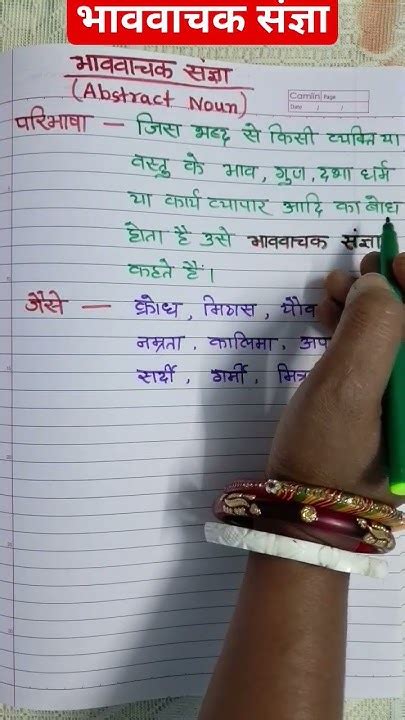 भाववाचक संज्ञा
भाववाचक संज्ञा
(Abstract Noun)
Camlin Page
Date / /
परिभाषा — जिस शब्द से किसी व्यक्ति या
वस्तु के भाव, गुण, दशा धर्म
या कार्य व्यापार आदि का बोध
होता है उसे भाववाचक संज्ञा
कहते हैं।
जैसे — क्रोध, मिठास, यौव
नम्रता, कालिमा, अप
सर्दी, गर्मी, मित्र